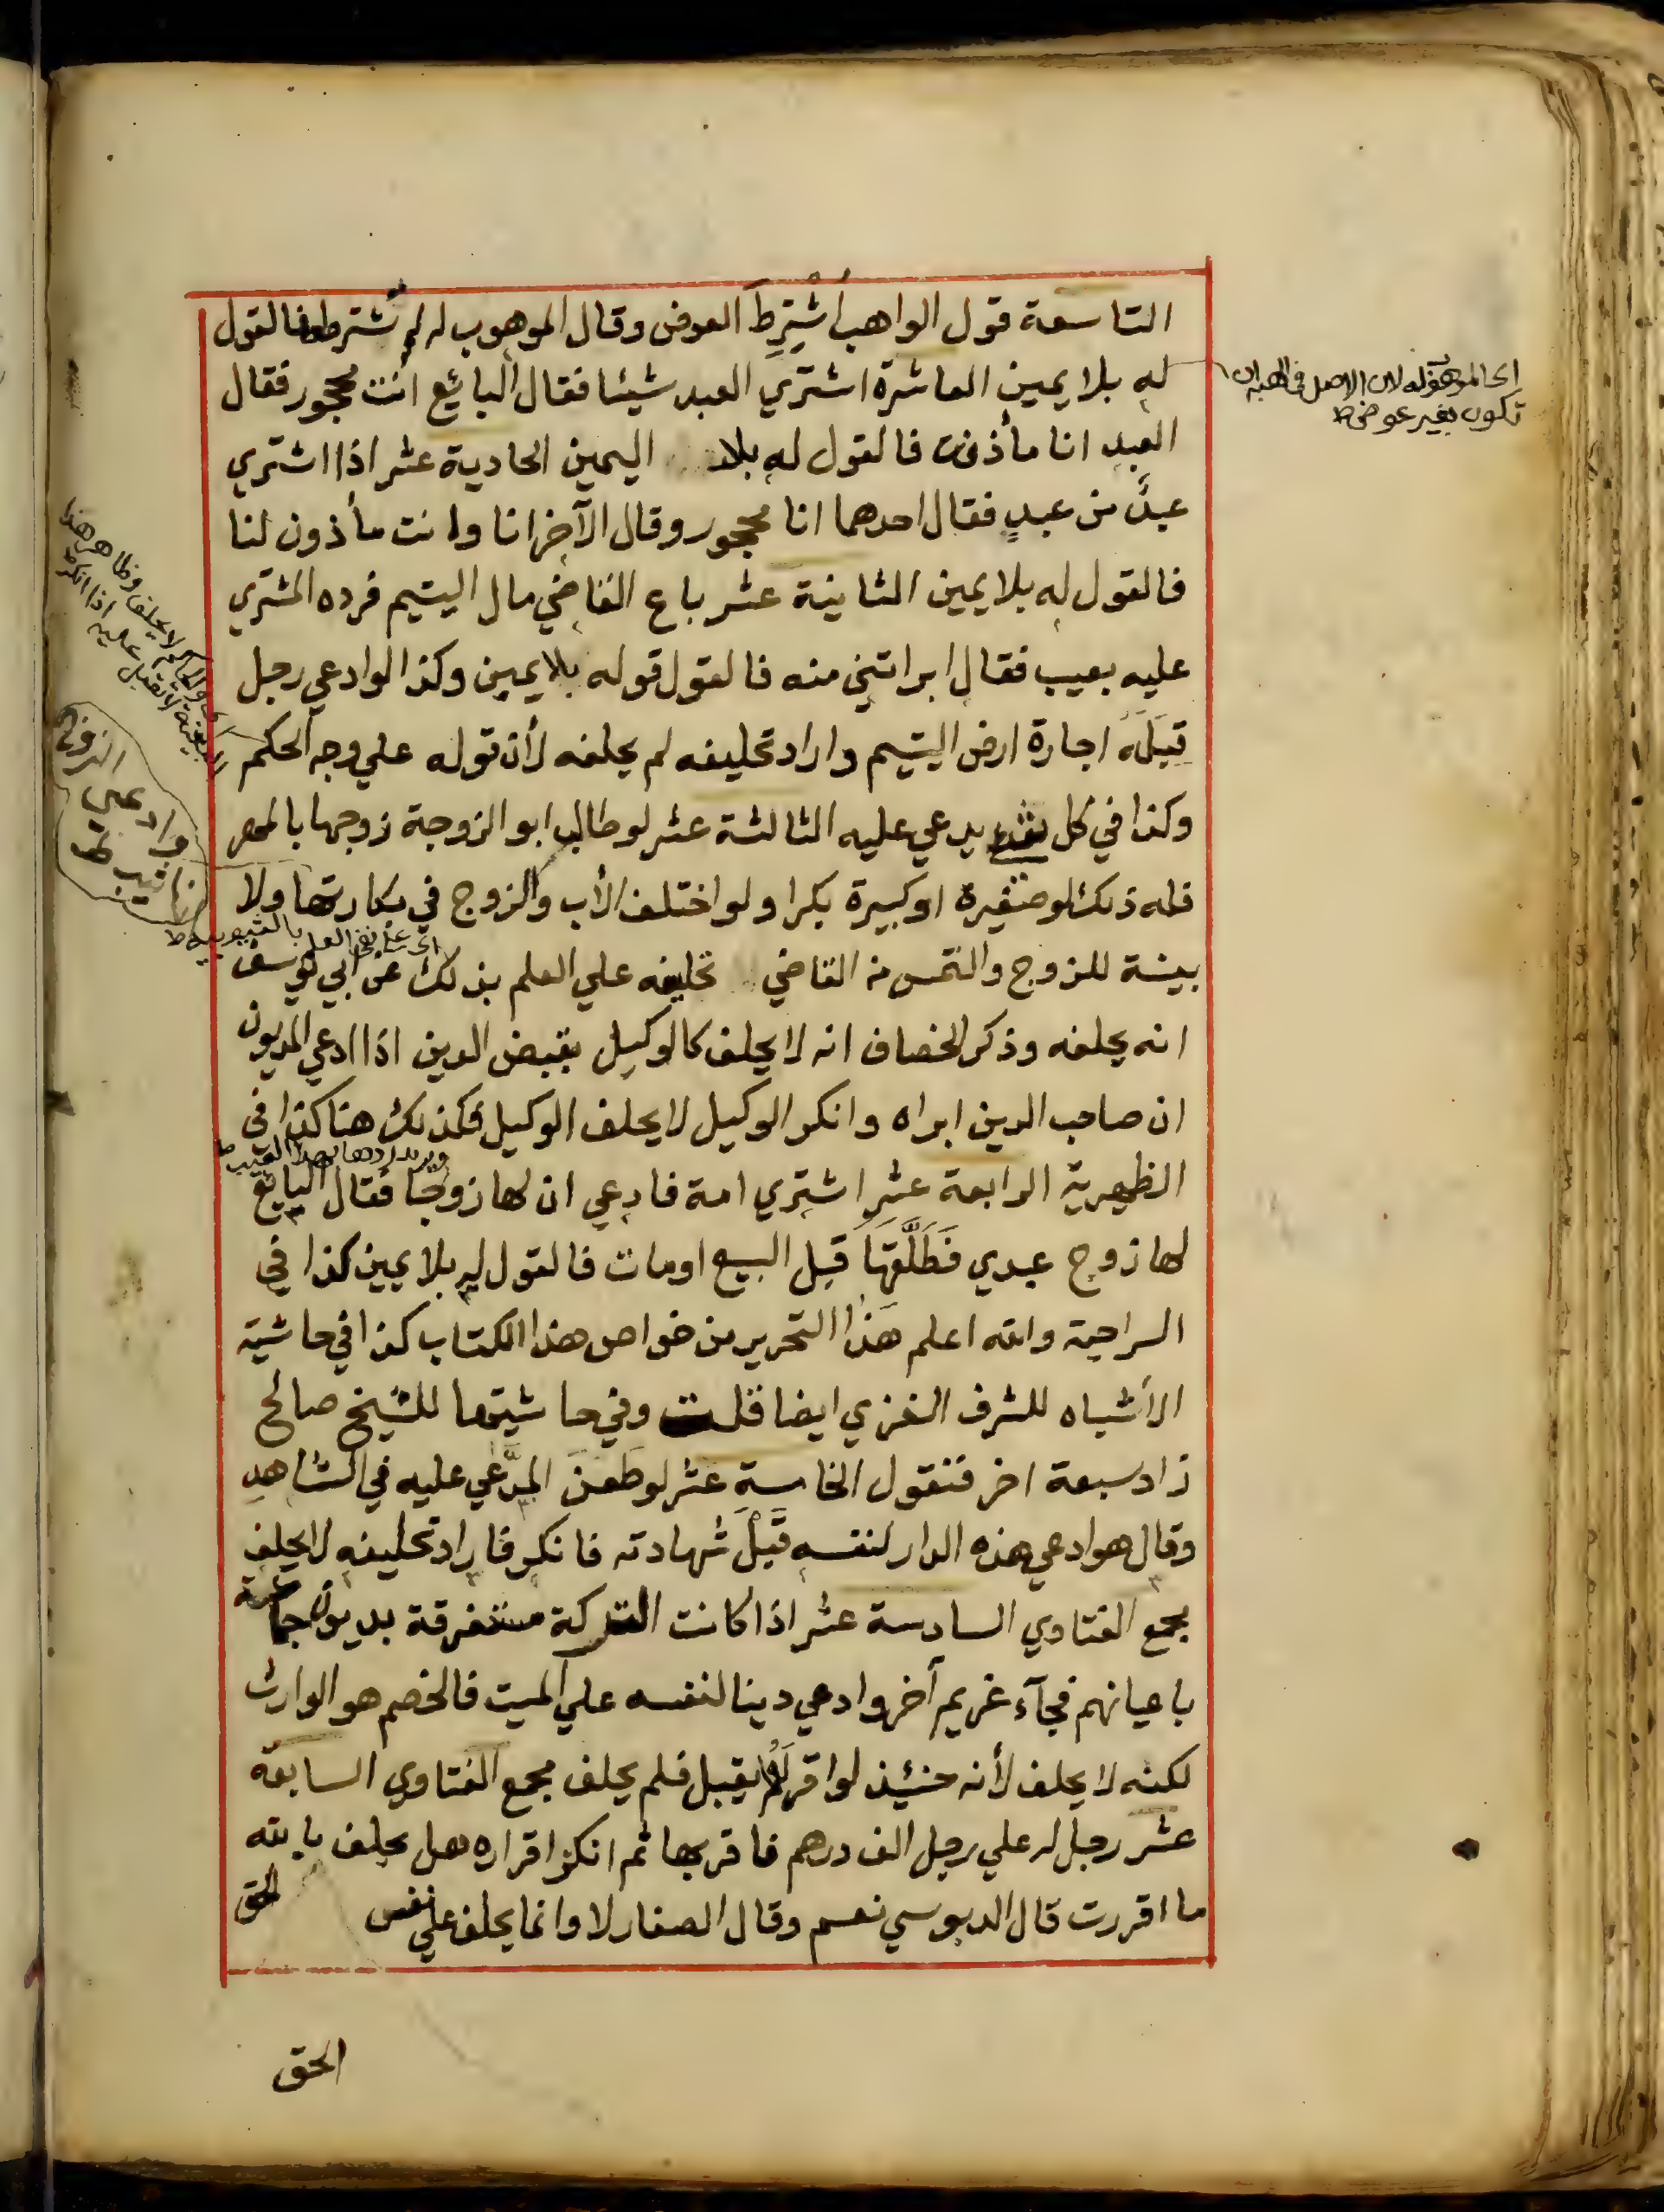 التاسعة قول الواهب اشترط العوض وقال الموهوب له لم تشترط فالقول
له بلا يمين العاشرة اشتري العبد شيئا فقال البائع انت محجور فقال
العبد انا مأذون فالقول له بلا اليمين الحادية عشر اذا اشتري
عبد من عبد فقال احدهما انا محجور وقال الآخر انا وانت مأذون لنا
فالقول له بلا يمين الثانية عشر باع القاضي مال اليتيم فرده المشتري
عليه بعيب فقال ابراتني منه فالقول قوله بلا يمين وكذا لو ادعي رجل
قِبَلَهُ اجارة ارض اليتيم واراد تحليفه لم يحلفه لأن قوله علي وجه الحكم
وكذا في كل شيء يدعي عليه الثالثة عشر لو طالب ابو الزوجة زوجها بالمهر
فله ذلك لو صغيرة او كبيرة بكرا ولو اختلف الأب والزوج في بكارتها ولا
بينة للزوج والتمس من القاضي تحليفه علي العلم بذلك عن ابي يوسف
انه يحلفه وذكر الخصاف انه لا يحلف كالوكيل بقبض الدين اذا ادعي المديون
ان صاحب الدين ابراه وانكر الوكيل لا يحلف الوكيل فكذلك هنا كذا في
الظهيرية الرابعة عشر اشتري امة فادعي ان لها زوجا فقال البايع
لها زوج عبدي فَطَلَّقَهَا قبل البيع او مات فالقول له بلا يمين كذا في
السراجية والله اعلم هذا التحرير من خواص هذا الكتاب كذا في حاشية
الأشباه للشرف الغزي ايضا قلت وفي حاشيتها للشيخ صالح
زاد سبعة اخر فنقول الخامسة عشر لو طَعَنَ المدَّعي عليه في الشاهد
وقال هو ادعي هذه الدار لنفسه قَبْلَ شهادته فانكر فاراد تحليفه لا يحلف
مجمع الفتاوي السادسة عشر اذا كانت التركة مستغرقة بديون جماعة
باعيانهم فجآء غريم آخر وادعي دينا لنفسه علي الميت فالخصم هو الوارث
لكنه لا يحلف لأنه حنيئذ لو اقر له لم يقبل فلم يحلف مجمع الفتاوي السابعة
عشر رجل له علي رجل الف درهم فاقر بها ثم انكر اقراره هل يحلف بالله
ما اقررت قال الدبوسي نعم وقال الصفار لا وانما يحلف علي نفس الحق
الحق
اى الموهوب له لان الاصل في الهبة ان
تكون بغير عوض ط
اى على نفي العلم بالثيوبة ط
ويريد ردها بهذا العيب ط
وادعى الزوج
انها ثيب ط
والحاكم لا يحلف وظاهر هذا